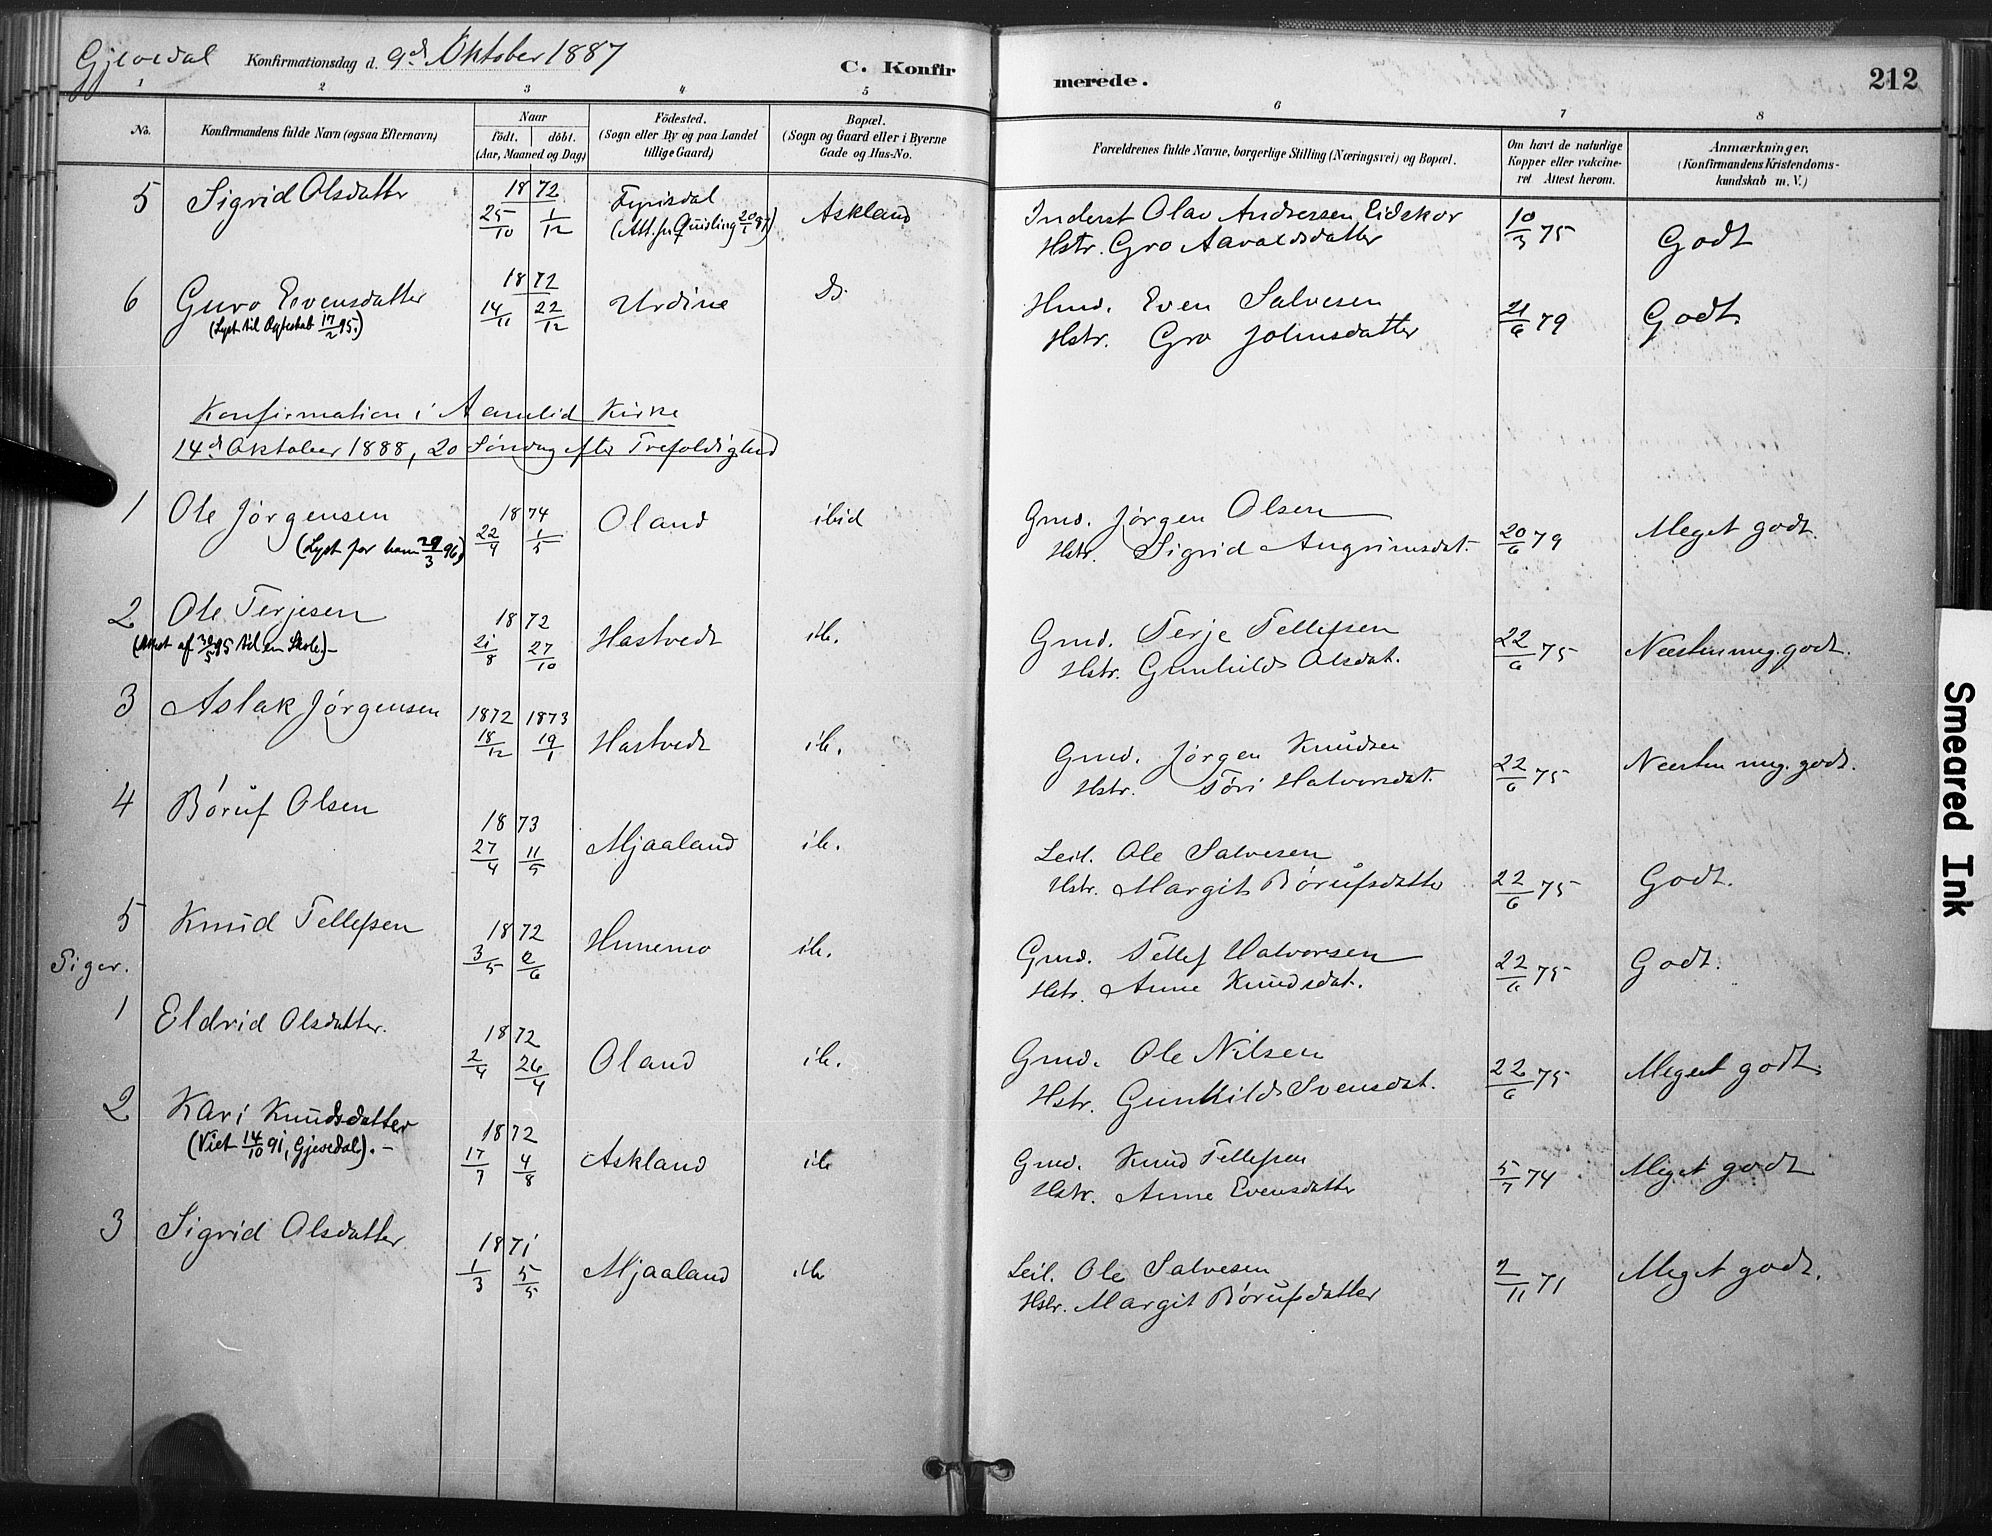 Gjevedal Konfirmationsdag d. 9de Oktober 1887 C. Konfirmerede. 212
1 2 3 4 5 6 7 8
No. Konfirmandens fulde Navn (ogsaa Efternavn) Naar födt. döbt. (Aar, Maaned og Dag) Födested. (Sogn eller By og paa Landet tillige Gaard) Bopæl. (Sogn og Gaard eller i Byerne Gade og Hus-No. Forældrenes fulde Navne, borgerlige Stilling (Næringsvei) og Bopæl. Om havt de naturlige Kopper eller vakcineret Attest herom. Anmærkninger. (Konfirmandens Kristendomskundskab m. V.)
5 Sigrid Olsdatter 1872 25/10 1/12 Fyrisdal (Att. fr. Quisling 20/1 87) Askland Inderst Olav Andressen Eidskor 10/3 75 Godt
Hstr. Gro Aavaldsdatter
6 Guro Eivensdatter 1872 14/11 22/12 Urdine Do Hmd. Even Salvesen 21/6 79 Godt.
(Lyst til Ægteskab 17/2 95.) Hstr. Gro Johnsdatter
Konfirmation i Aamlid Kirke
14de Oktober 1888, 20 Søndag efter Trefoldighed
1 Ole Jørgensen 1874 22/4 1/5 Oland ibid Gmd. Jørgen Olsen 20/6 79 Meget godt.
(Lyst for ham 29/3 96) Hstr. Sigrid Angrimsdat.
2 Ole Terjesen 1872 21/8 27/10 Hastvedt ib. Gmd. Terje Tellefsen 22/6 75 Næsten meg. godt.
(Attest af 30/5 95 til en Skole).- Hstr. Gunhild Olsdat.
3 Aslak Jørgensen 1872 18/12 1873 19/1 Hastvedt ib. Gmd. Jørgen Knudsen 22/6 75 Næsten meg. godt.
Hstr. Tøri Halvorsdat.
4 Børuf Olsen 1873 27/4 11/5 Mjaaland ib. Leil. Ole Salvesen 22/6 75 Godt.
Hstr. Margit Børufsdatter
5 Knud Tellefsen 1872 3/5 2/6 Hunemo ib. Gmd. Tellef Halvorsen 22/6 75 Godt.
Hstr. Anne Knudsdat.
Piger.
1 Eldrid Olsdatter. 1872 2/4 26/4 Oland ib. Gmd. Ole Nilsen 22/6 75 Meget godt.
Hstr. Gunhild Svensdat.
2 Kari Knudsdatter 1872 17/7 4/8 Askland ib Gmd. Knud Tellefsen 5/7 74 Meget godt
(Viet 14/10 91, Gjevedal).- Hstr. Anne Evensdatter
3 Sigrid Olsdatter 1871 1/3 5/5 Mjaaland ib Leil. Ole Salvesen 2/11 71 Meget godt.
Hstr. Margit Børufsdatter
Smeared Ink